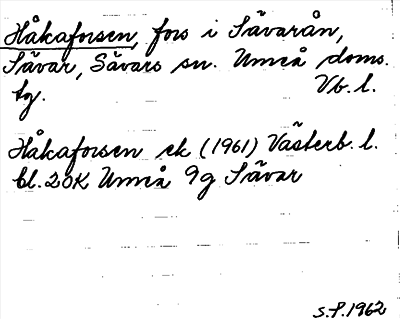 Håkaforsen, fors i Sävarån,
Sävar, Sävars sn. Umeå doms.
tg. Vb. l.
Håkaforsen ek (1961) Västerb. l.
bl. 20K Umeå 9g Sävar
S.F. 1962